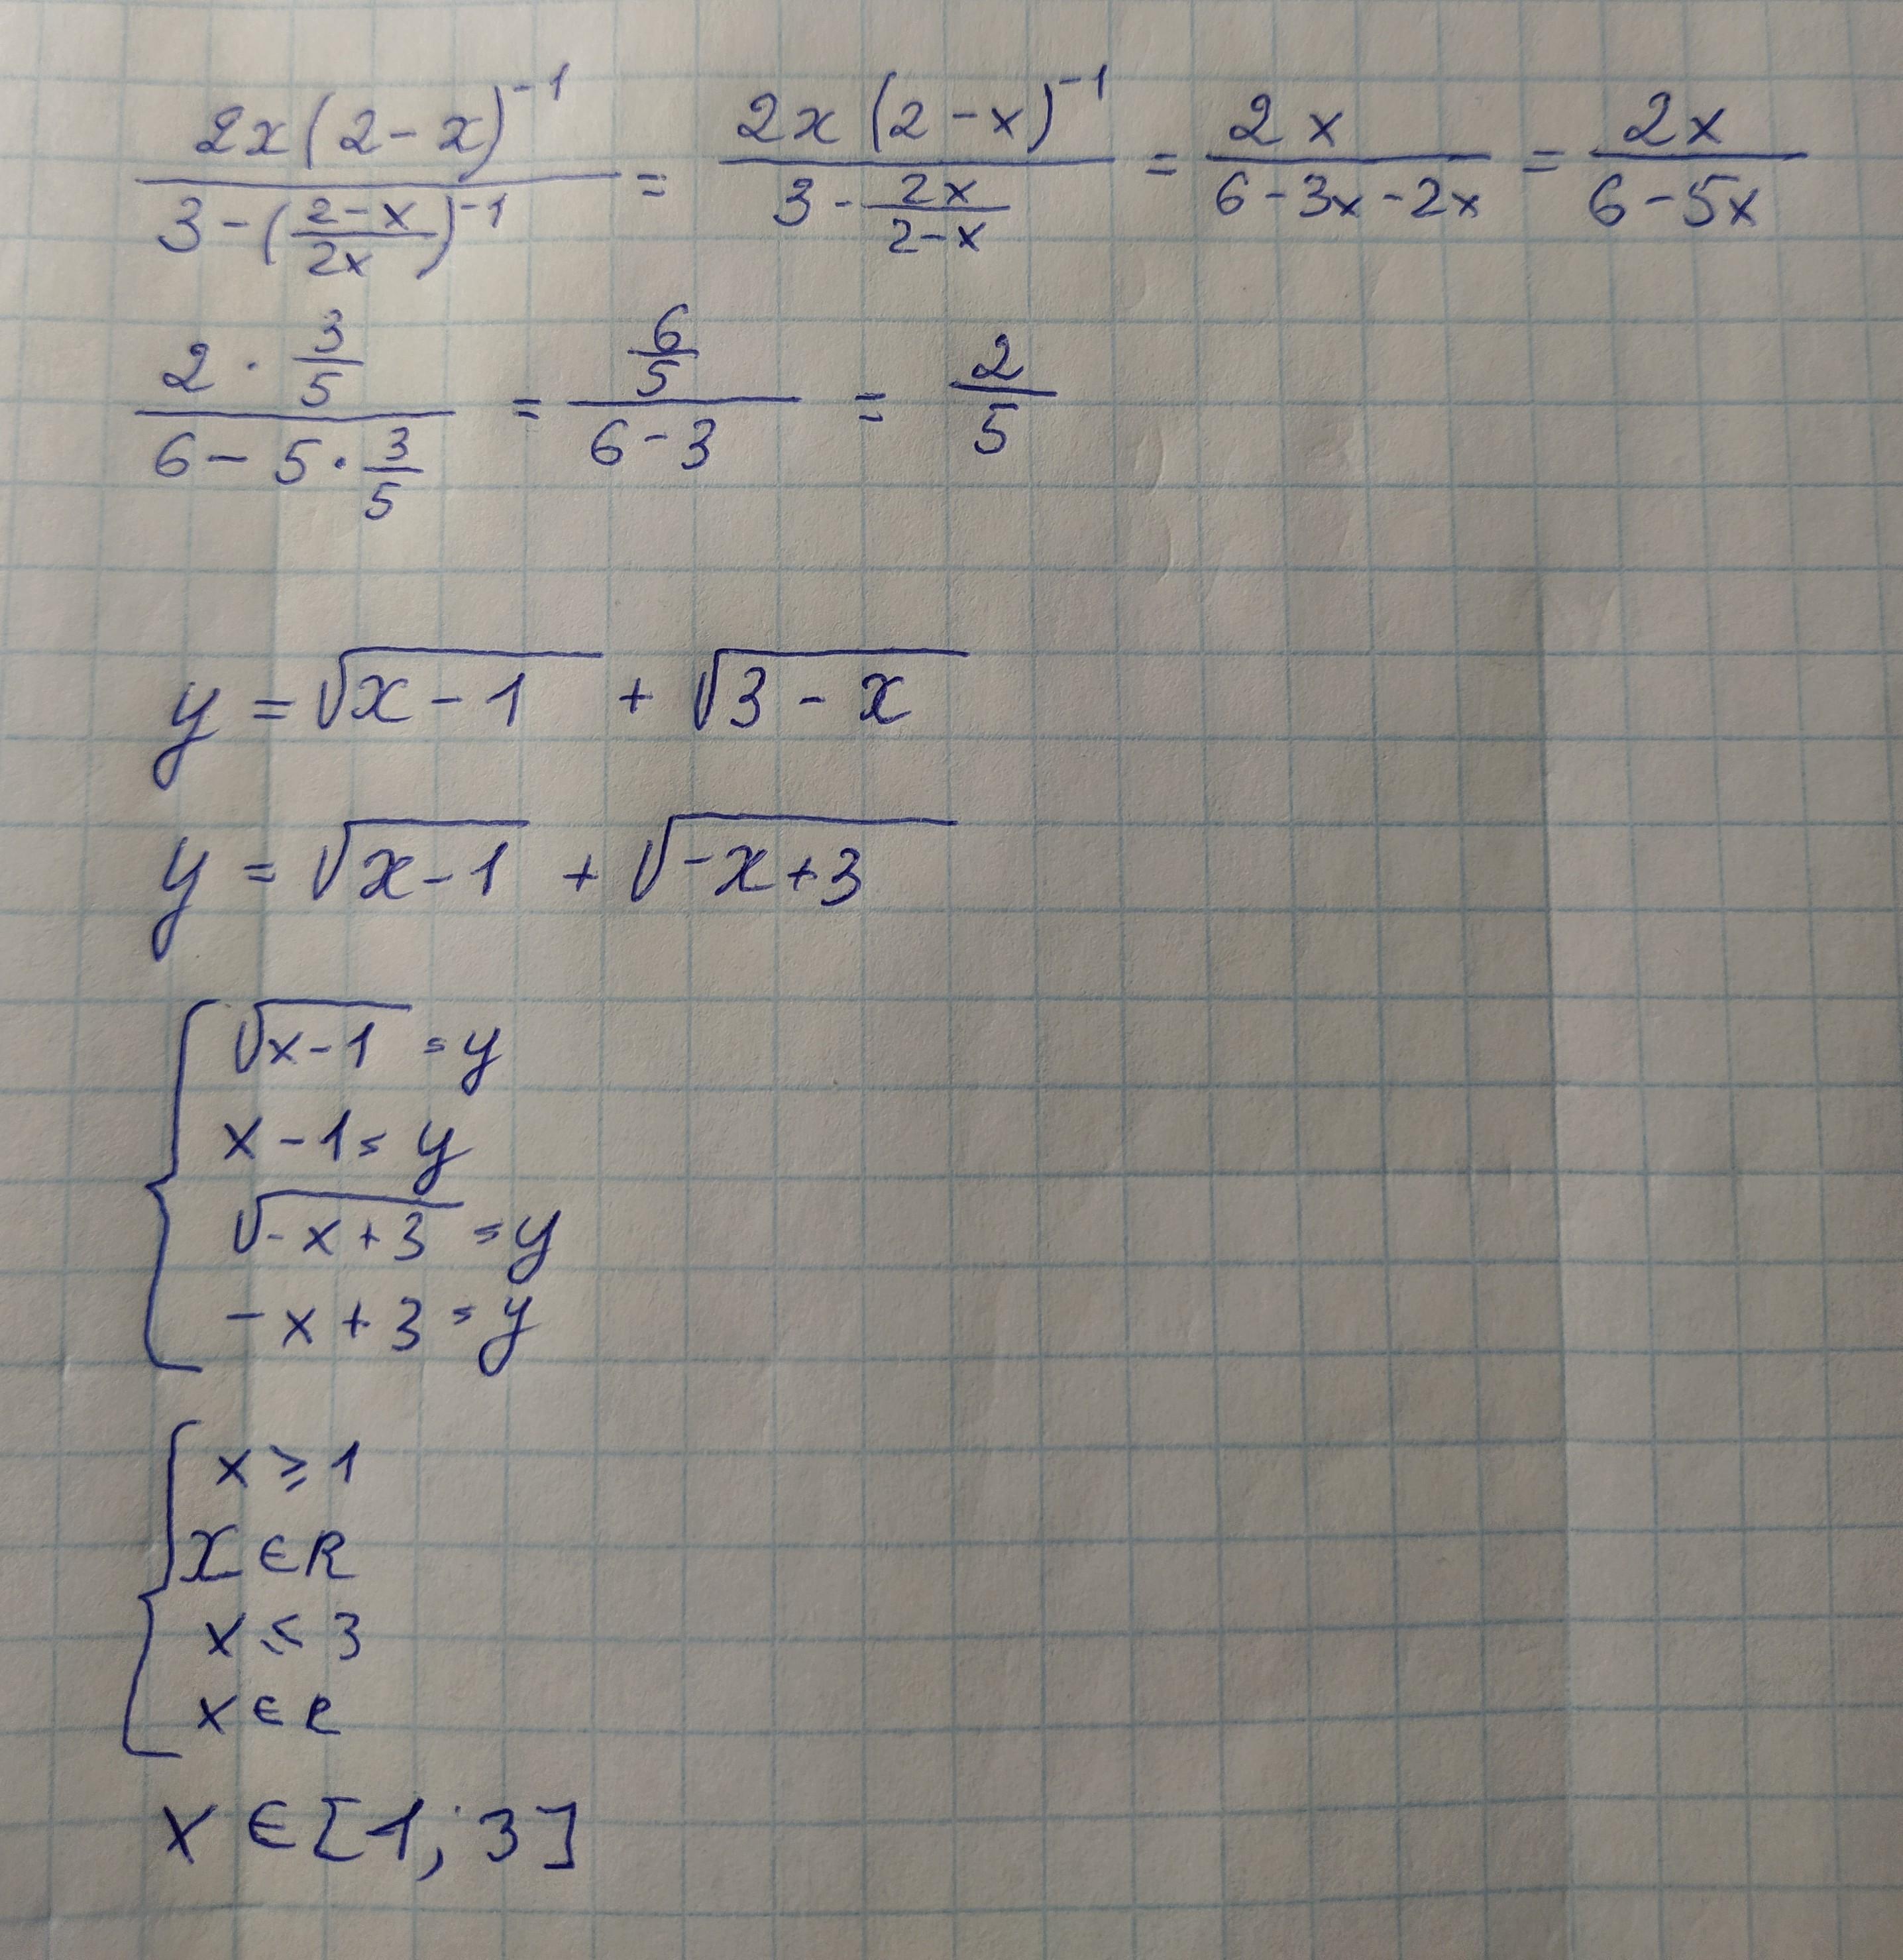 2x(2-x)^-1 / (3-((2-x)/(2x))^-1) = 2x(2-x)^-1 / (3-(2x)/(2-x)) = 2x / (6-3x-2x) = 2x / (6-5x)
(2·3/5) / (6-5·3/5) = (6/5) / (6-3) = 2/5
y = √(x-1) + √(3-x)
y = √(x-1) + √(-x+3)
{ √(x-1) = y
x-1 = y
√(-x+3) = y
-x+3 = y
{ x ≥ 1
x ∈ R
x ≤ 3
x ∈ R
x ∈ [1; 3]